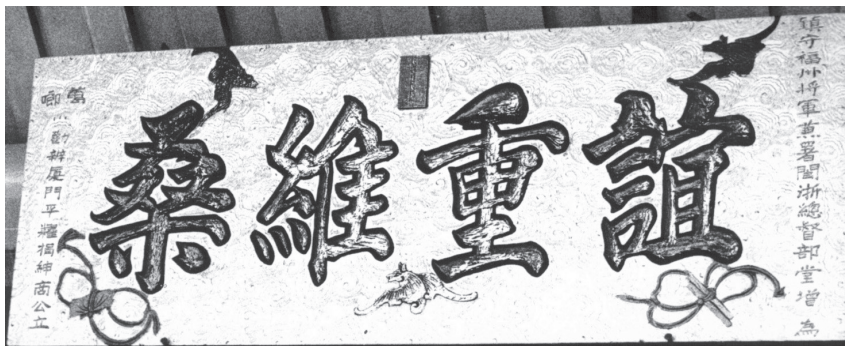 鎮守福州將軍兼署閩浙總督部堂增 為
誼重維桑
萬
啷 辦厦門平糶捐紳商公立